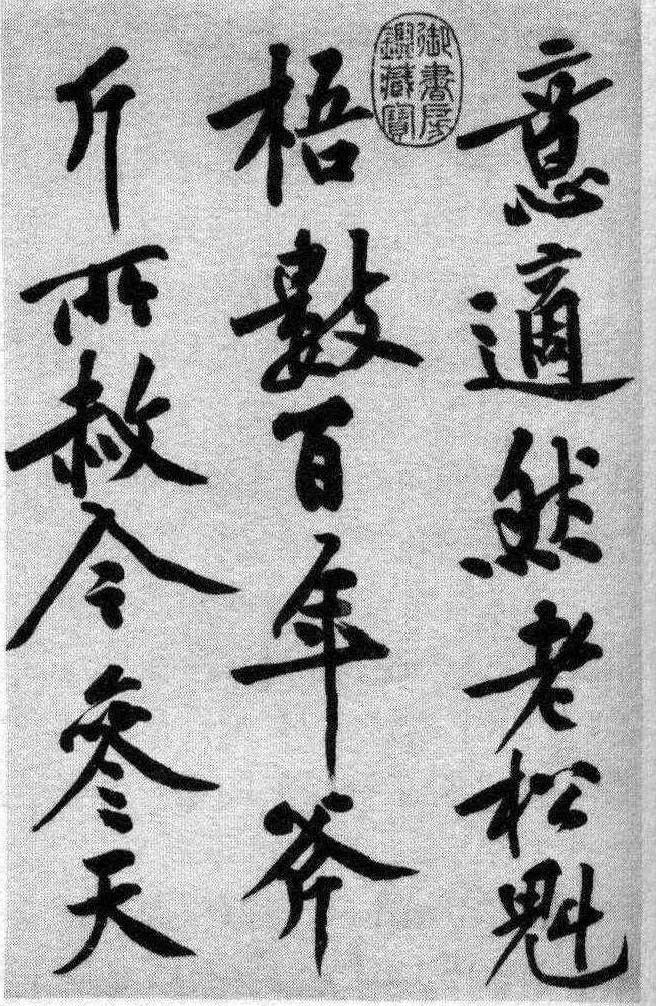 意適然老松魁
御書房
鑑藏寶
梧數百年斧
斤所赦今參天